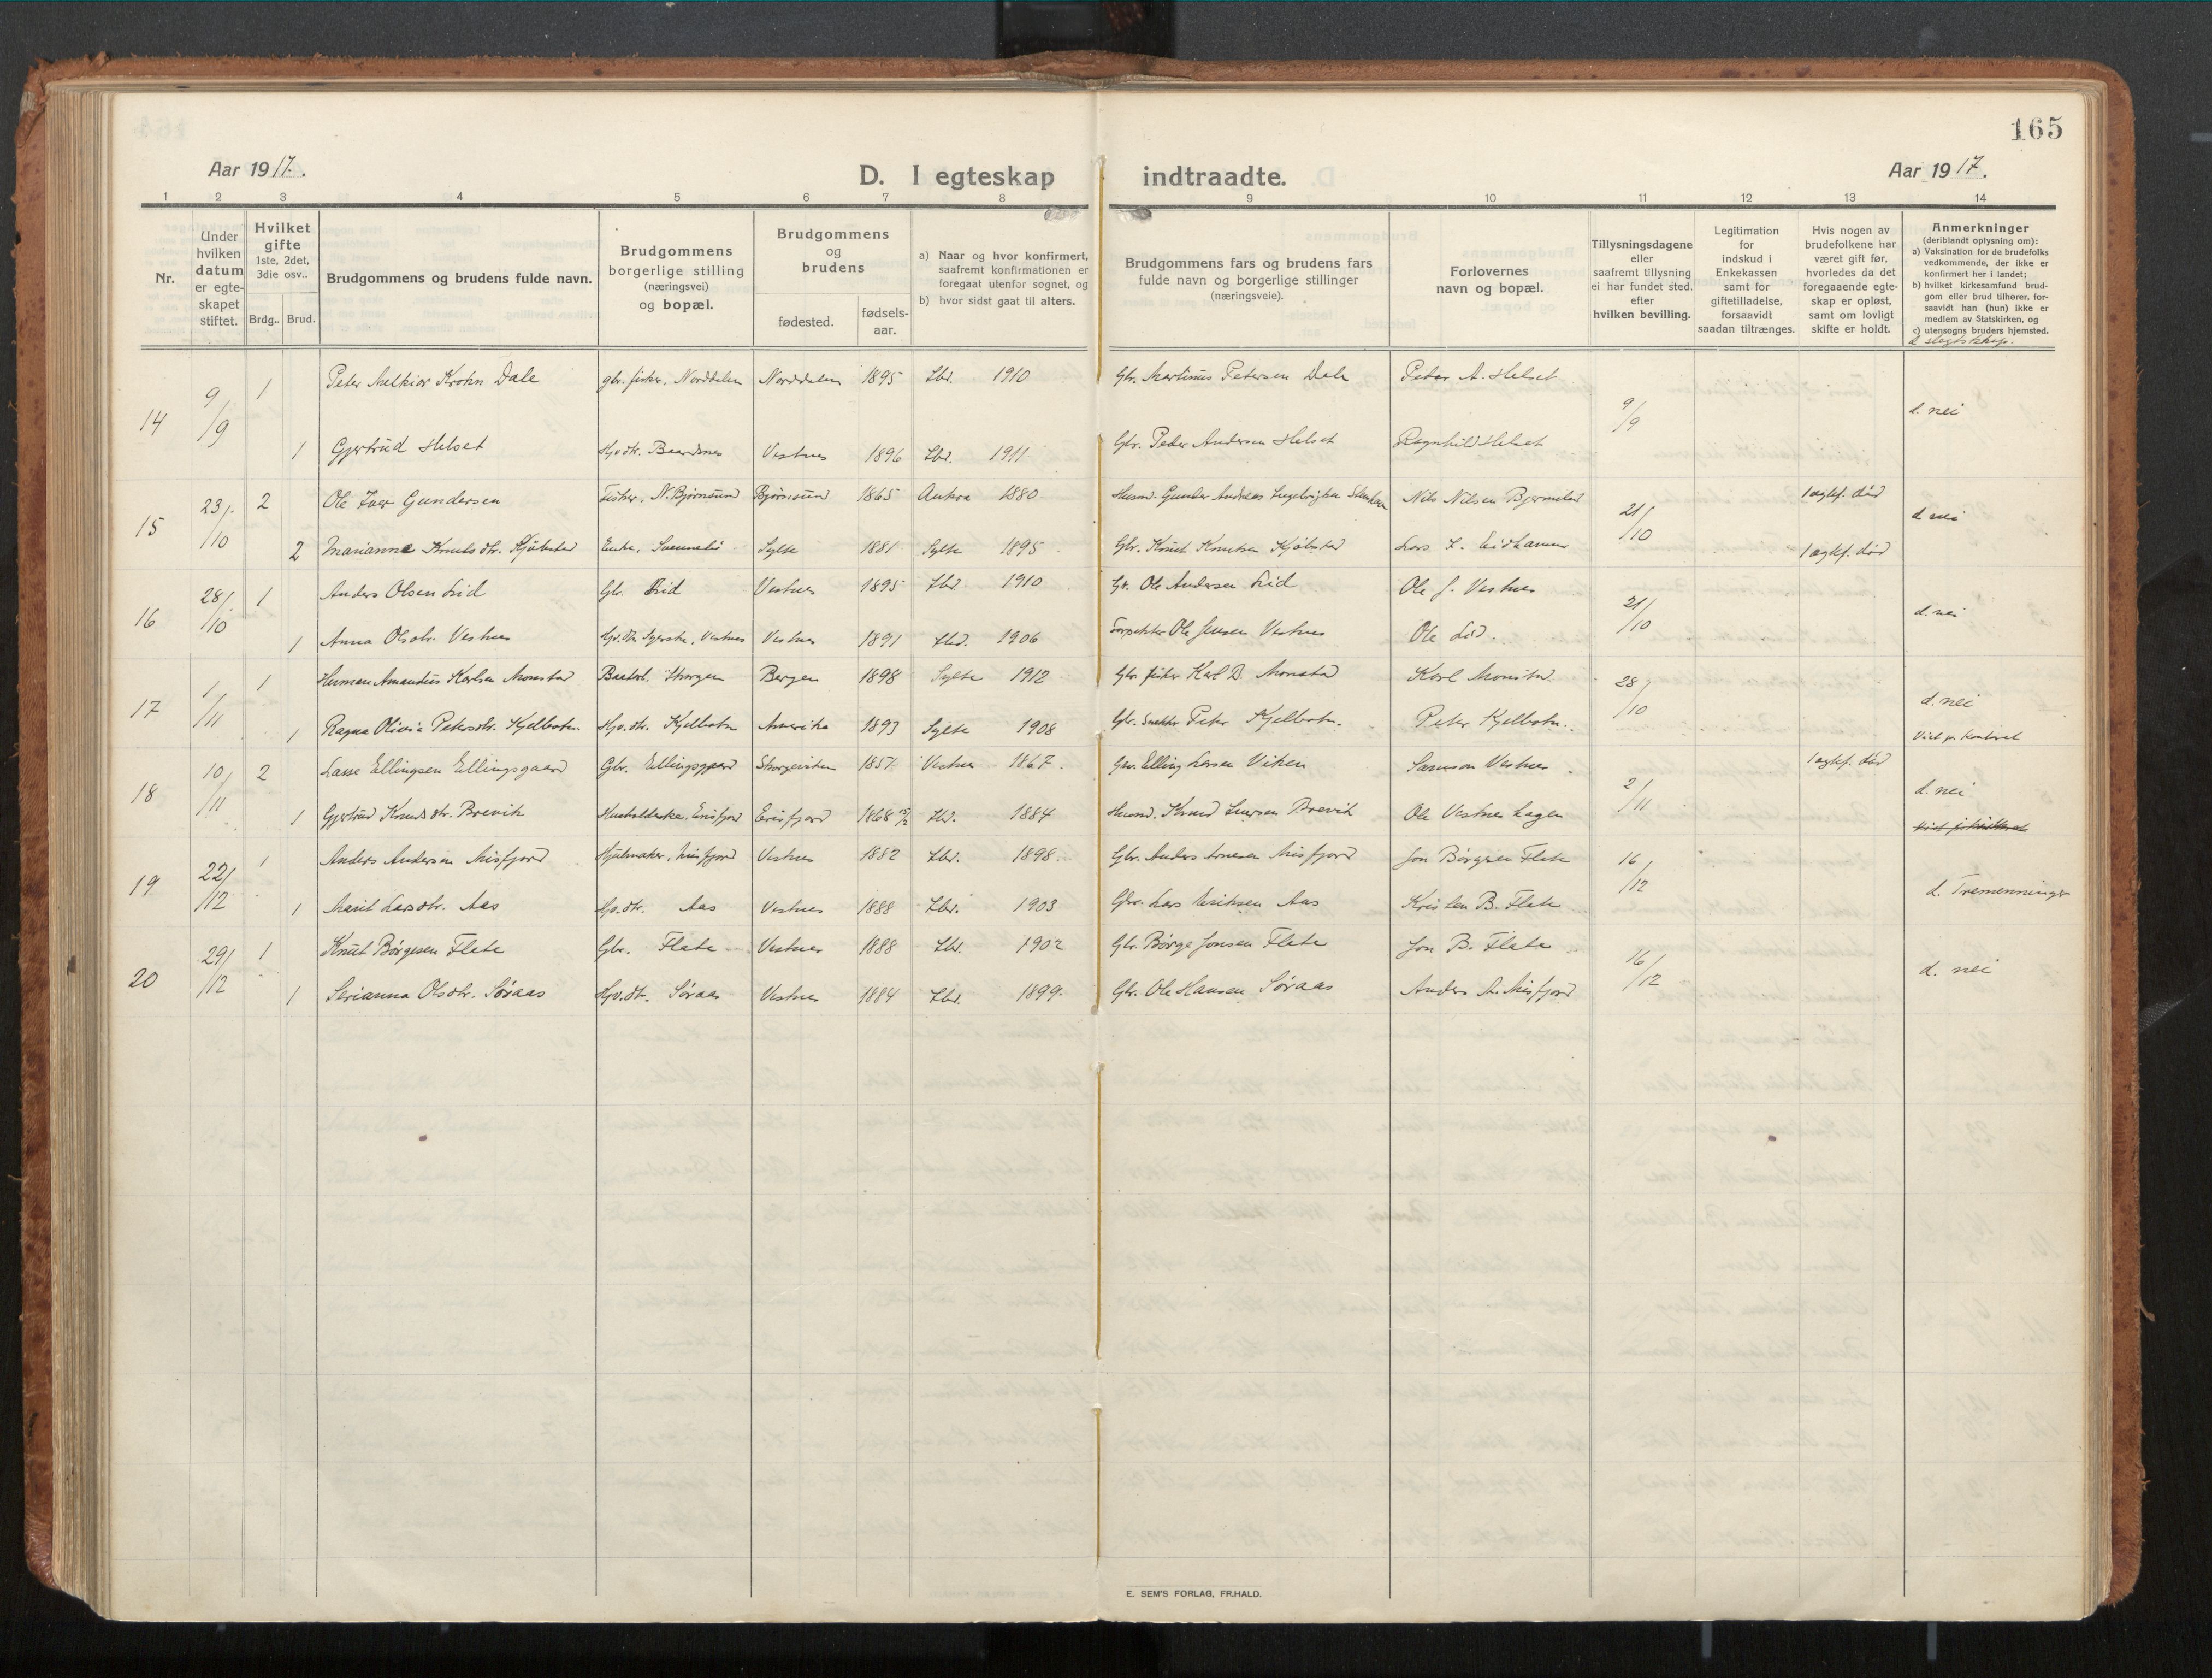 165
Aar 1917.
D. I egteskap indtraadte.
Aar 1917.
1 2 3 4 5 6 7 8 9 10 11 12 13 14
Nr.
Under hvilken datum er egte-skapet stiftet.
Hvilket gifte 1ste, 2det, 3die osv..
Brdg.. Brud.
Brudgommens og brudens fulde navn.
Brudgommens borgerlige stilling (næringsvei) og bopæl.
Brudgommens og brudens
fødested.
fødsels-aar.
a) Naar og hvor konfirmert, saafremt konfirmationen er foregaat utenfor sognet, og
b) hvor sidst gaat til alters.
Brudgommens fars og brudens fars fulde navn og borgerlige stillinger (næringsveie).
Forlovernes navn og bopæl.
Tillysningsdagene eller saafremt tillysning ei har fundet sted. efter hvilken bevilling.
Legitimation for indskud i Enkekassen samt for giftetilladelse, forsaavidt saadan tiltrænges.
Hvis nogen av brudefolkene har været gift før, hvorledes da det foregaaende egte-skap er opløst, samt om lovligt skifte er holdt.
Anmerkninger (deriblandt oplysning om):
a) Vaksination for de brudefolks vedkommende, der ikke er konfirmert her i landet;
b) hvilket kirkesamfund brud-gom eller brud tilhører, for-saavidt han (hun) ikke er medlem av Statskirken, og
c) utensogns bruders hjemsted.
d slegtskap.
14 9/9 1 Peter Melkior Krohn Dale gbr. fisker, Norddalen Norddalen 1895 Ibd. 1910 Gbr. Martinus Petersen Dale Peter A. Helset 9/9 d. nei
1 Gjertrud Helset Hjv.dtr. Baardsnes Vestnes 1896 Ibd. 1911 Gbr. Peder Andersen Helset Ragnhild Helset
15 23/10 2 Ole Iver Gundersen Fisker, N. Bjørnsund Bjørnsund 1865 Aukra 1880 Husm. Gunder Andreas Nils Nilsen Bjermeland 21/10 1 egtef. død d. nei
2 Marianne Knutsdtr. Kjøbstad Enke, Svennelid Sylte 1881 Sylte 1895 Gbr. Knut Knutsen Kjøbstad Lars L. Eidhammer 1 egtef. død
16 28/10 1 Anders Olsen Lid Gbr. Lid Vestnes 1895 Ibd. 1910 Gbr. Ole Andersen Lid Ole J. Vestnes 21/10 d. nei
1 Anna Olsdtr. Vestnes Vestnes Vestnes 1891 Ibd. 1906 Ole Jensen Vestnes Ole Lid.
17 1/11 1 Herman Amandus Karlsen Monstad Bergen 1898 Sylte 1912 Gbr. fisker Karl D. Monstad Karl Monstad 28/10 d. nei
1 Ragna Olivia Petersdtr. Kjelbotn. Hjv.dtr. Kjelbotn Amerika 1893 Sylte 1908 Gbr. Snekker Peter Kjelbotn. Peter Kjelbotn. Viet p. kontoret
18 10/11 2 Lasse Ellingsen Ellingsgaard Gbr. Ellingsgaard Skorgeviken 1851 Vestnes 1867. Gbr. Elling Larsen Viken Samson Vestnes 2/11 1 egtef. død d. nei
1 Gjertrud Knudsdtr. Brevik Husholderske, Erisfjord Erisfjord 1868 Ibd. 1884 Husm. Knud Iversen Brevik Ole Vestnes Hagen
19 22/12 1 Anders Andersen Misfjord Hjulmaker, Misfjord Vestnes 1882 Ibd. 1898. Gbr. Anders Arnesen Misfjord Jon Børgesen Flate 16/12 d. Tremenninger
1 Marit Larsdtr. Aas Hjv.dtr. Aas Vestnes 1888 Ibd. 1903 Gbr. Lars Eriksen Aas Kristen B. Flate
20 29/12 1 Knut Børgesen Flate Gbr. Flate Vestnes 1888 Ibd. 1902 Gbr. Børge Jonsen Flate Jon B. Flate 16/12 d. nei
1 Serianna Olsdtr. Søraas Hjv.dtr. Søraas Vestnes 1884 Ibd. 1899. Gbr. Ole Hansen Søraas Anders A. Misfjord
E. SEM'S FORLAG, FR.HALD.